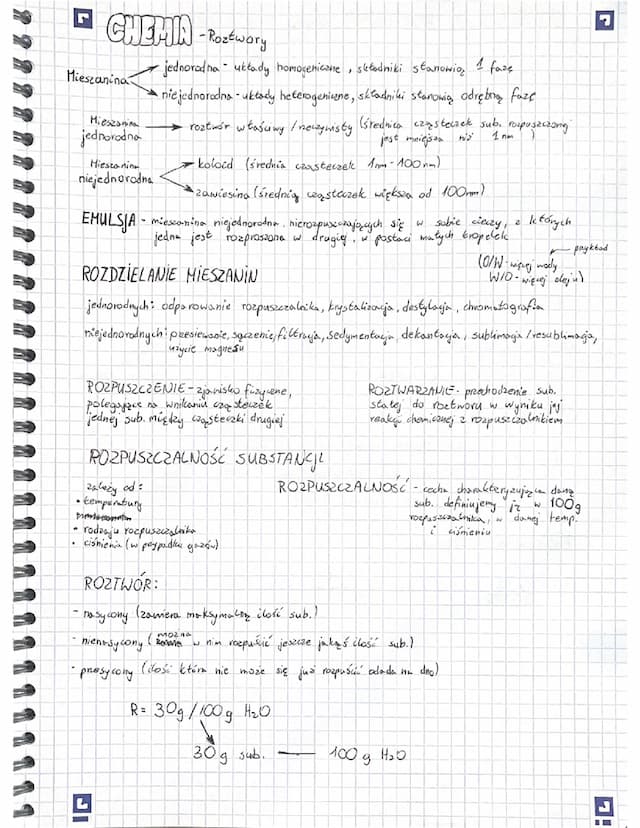 CHEMIA - Roztwory
Mieszanina
jednorodna - układy homogeniczne, składniki stanowią 1 fazę
niejednorodna - układy heterogeniczne, składniki stanowią odrębną fazę
Mieszanina jednorodna → roztwór właściwy / rzeczywisty (średnica cząsteczek sub. rozpuszczonej
jest mniejsza niż 1 nm)
Mieszanina niejednorodna
koloid (średnia cząsteczek 1nm - 100nm)
zawiesina (średnia cząsteczek większa od 100nm)
EMULSJA - mieszanina niejednorodna, nierozpuszczających się w sobie cieczy, z których
jedna jest rozproszona w drugiej, w postaci małych kropelek
przykład
(O/W - więcej wody
W/O - więcej oleju)
ROZDZIELANIE MIESZANIN
jednorodnych: odparowanie rozpuszczalnika, krystalizacja, destylacja, chromatografia
niejednorodnych: przesiewanie, sączenie/filtracja, sedymentacja, dekantacja, sublimacja/resublimacja,
użycie magnesu
ROZPUSZCZENIE - zjawisko fizyczne,
polegające na wnikaniu cząsteczek
jednej sub. między cząsteczki drugiej
ROZTWARZANIE - przechodzenie sub.
stałej do roztworu w wyniku jej
reakcji chemicznej z rozpuszczalnikiem
ROZPUSZCZALNOŚĆ SUBSTANCJI
zależy od:
• temperatury
• rodzaju rozpuszczalnika
• ciśnienia (w przypadku gazów)
ROZPUSZCZALNOŚĆ - cecha charakteryzująca daną
sub. definiujemy ją w 100g
rozpuszczalnika, w danej temp.
i ciśnieniu
ROZTWÓR:
- nasycony (zawiera maksymalną ilość sub.)
- nienasycony (można w nim rozpuścić jeszcze jakąś ilość sub.)
- przesycony (ilość która nie może się już rozpuścić opada na dno)
R = 30g / 100g H₂O
30g sub. — 100g H₂O